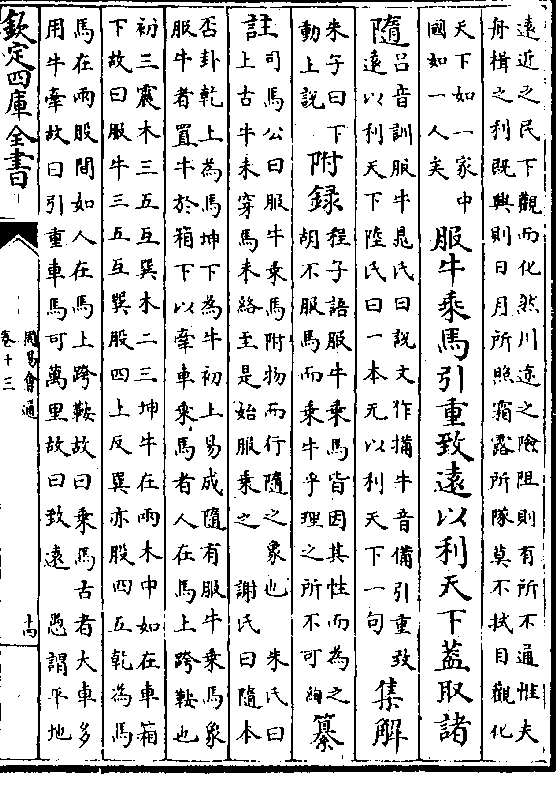 遠近之民下觀而化然川途之險阻則有所不通惟夫
舟楫之利既興則日月所照霜露所隊莫不拭目觀化
天下如一家中
國如一人矣
服牛乘馬引重致遠以利天下蓋取諸
隨
呂音訓服牛晁氏曰說文作犕牛音備引重致
遠以利天下陸氏曰一本无以利天下一句
集解
朱子曰下
動上說
附録
程子語服牛乘馬皆因其性而為之
胡不服馬而乘牛乎理之所不可
纂
註
司馬公曰服牛乘馬附物而行隨之象也 朱氏曰
上古牛未穿馬未絡至是始服乘之 謝氏曰隨本
否卦乾上為馬坤下為牛初上易成隨有服牛乘馬象
服牛者置牛於箱下以牽車乘馬者人在馬上跨鞍也
初三震木三五互巽木二三坤牛在兩木中如在車箱
下故曰服牛三五互巽股四上反巽亦股四五乾為馬
馬在兩股間如人在馬上跨鞍故曰乘馬古者大車多
用牛牽故曰引重車馬可萬里故曰致遠 愚謂平地
欽定四庫全書
周易會通
卷十三
十四